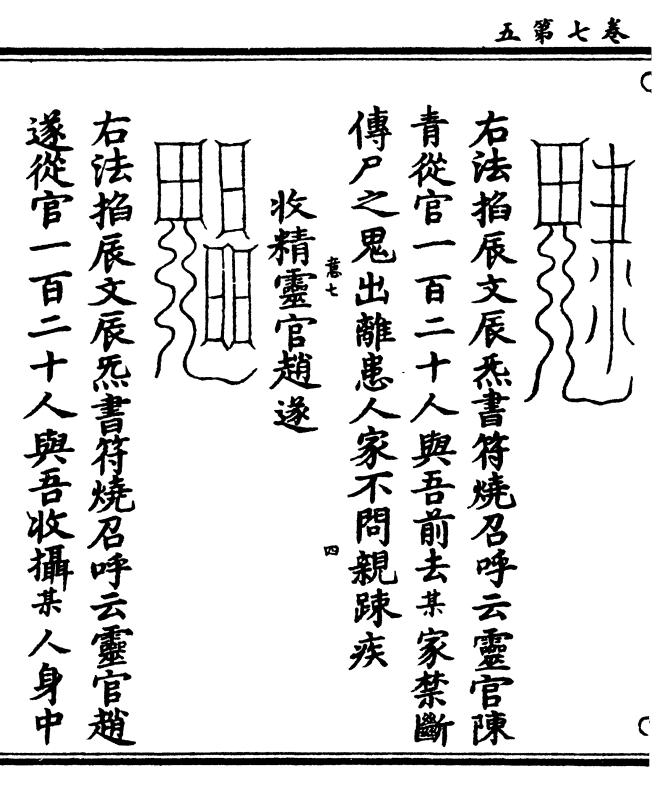 卷七第五
右法掐辰文辰炁書符燒召呼云靈官陳
青從官一百二十人與吾前去某家禁斷
傳尸之鬼出離患人家不問親踈疾
意七
四
收精靈官趙遂
右法掐辰文辰炁書符燒召呼云靈官趙
遂從官一百二十人與吾收攝某人身中